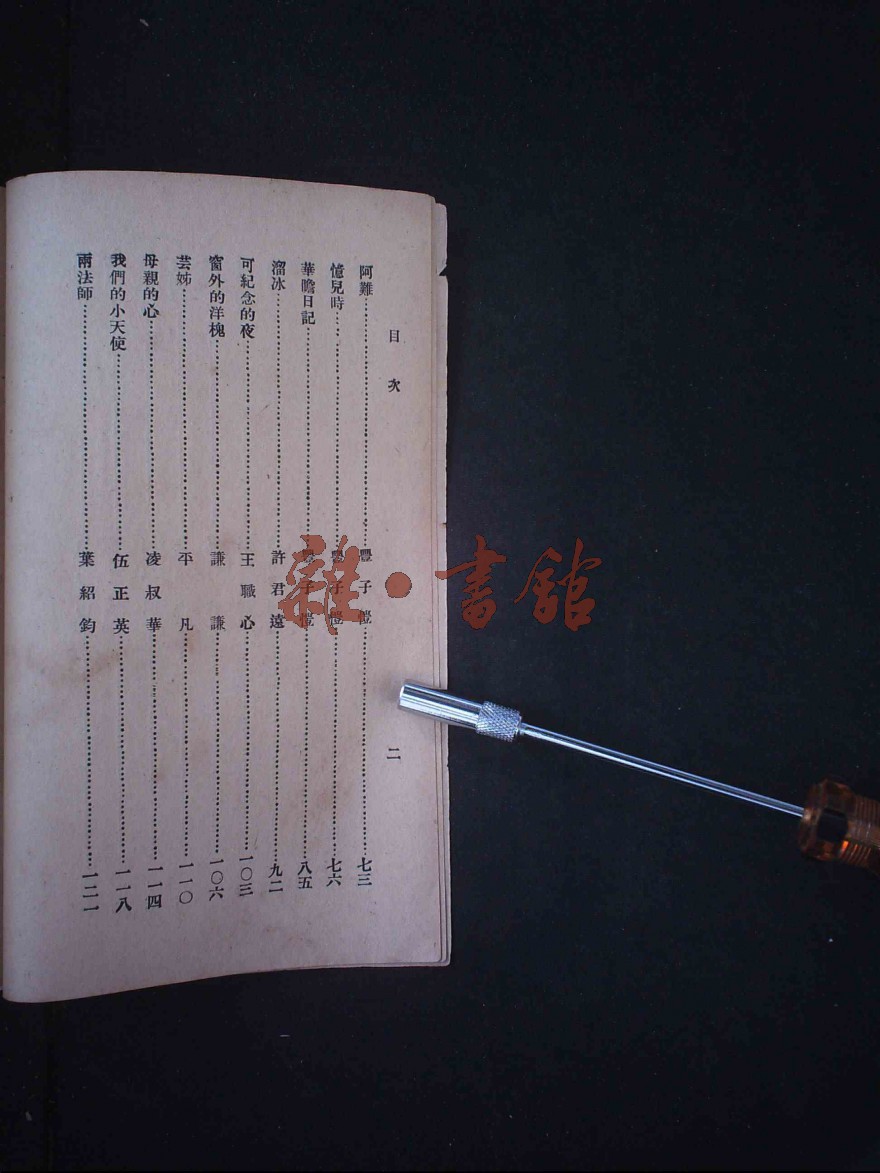 目次
二
阿難 豐子愷 七三
憶兒時 豐子愷 七六
華瞻日記 豐子愷 八五
溜冰 許君遠 九二
可紀念的夜 王職心 一〇三
窗外的洋槐 謙謙 一〇六
芸姊 平凡 一一〇
母親的心 凌叔華 一一四
我們的小天使 伍正英 一一八
兩法師 葉紹鈞 一二一
雜·書館